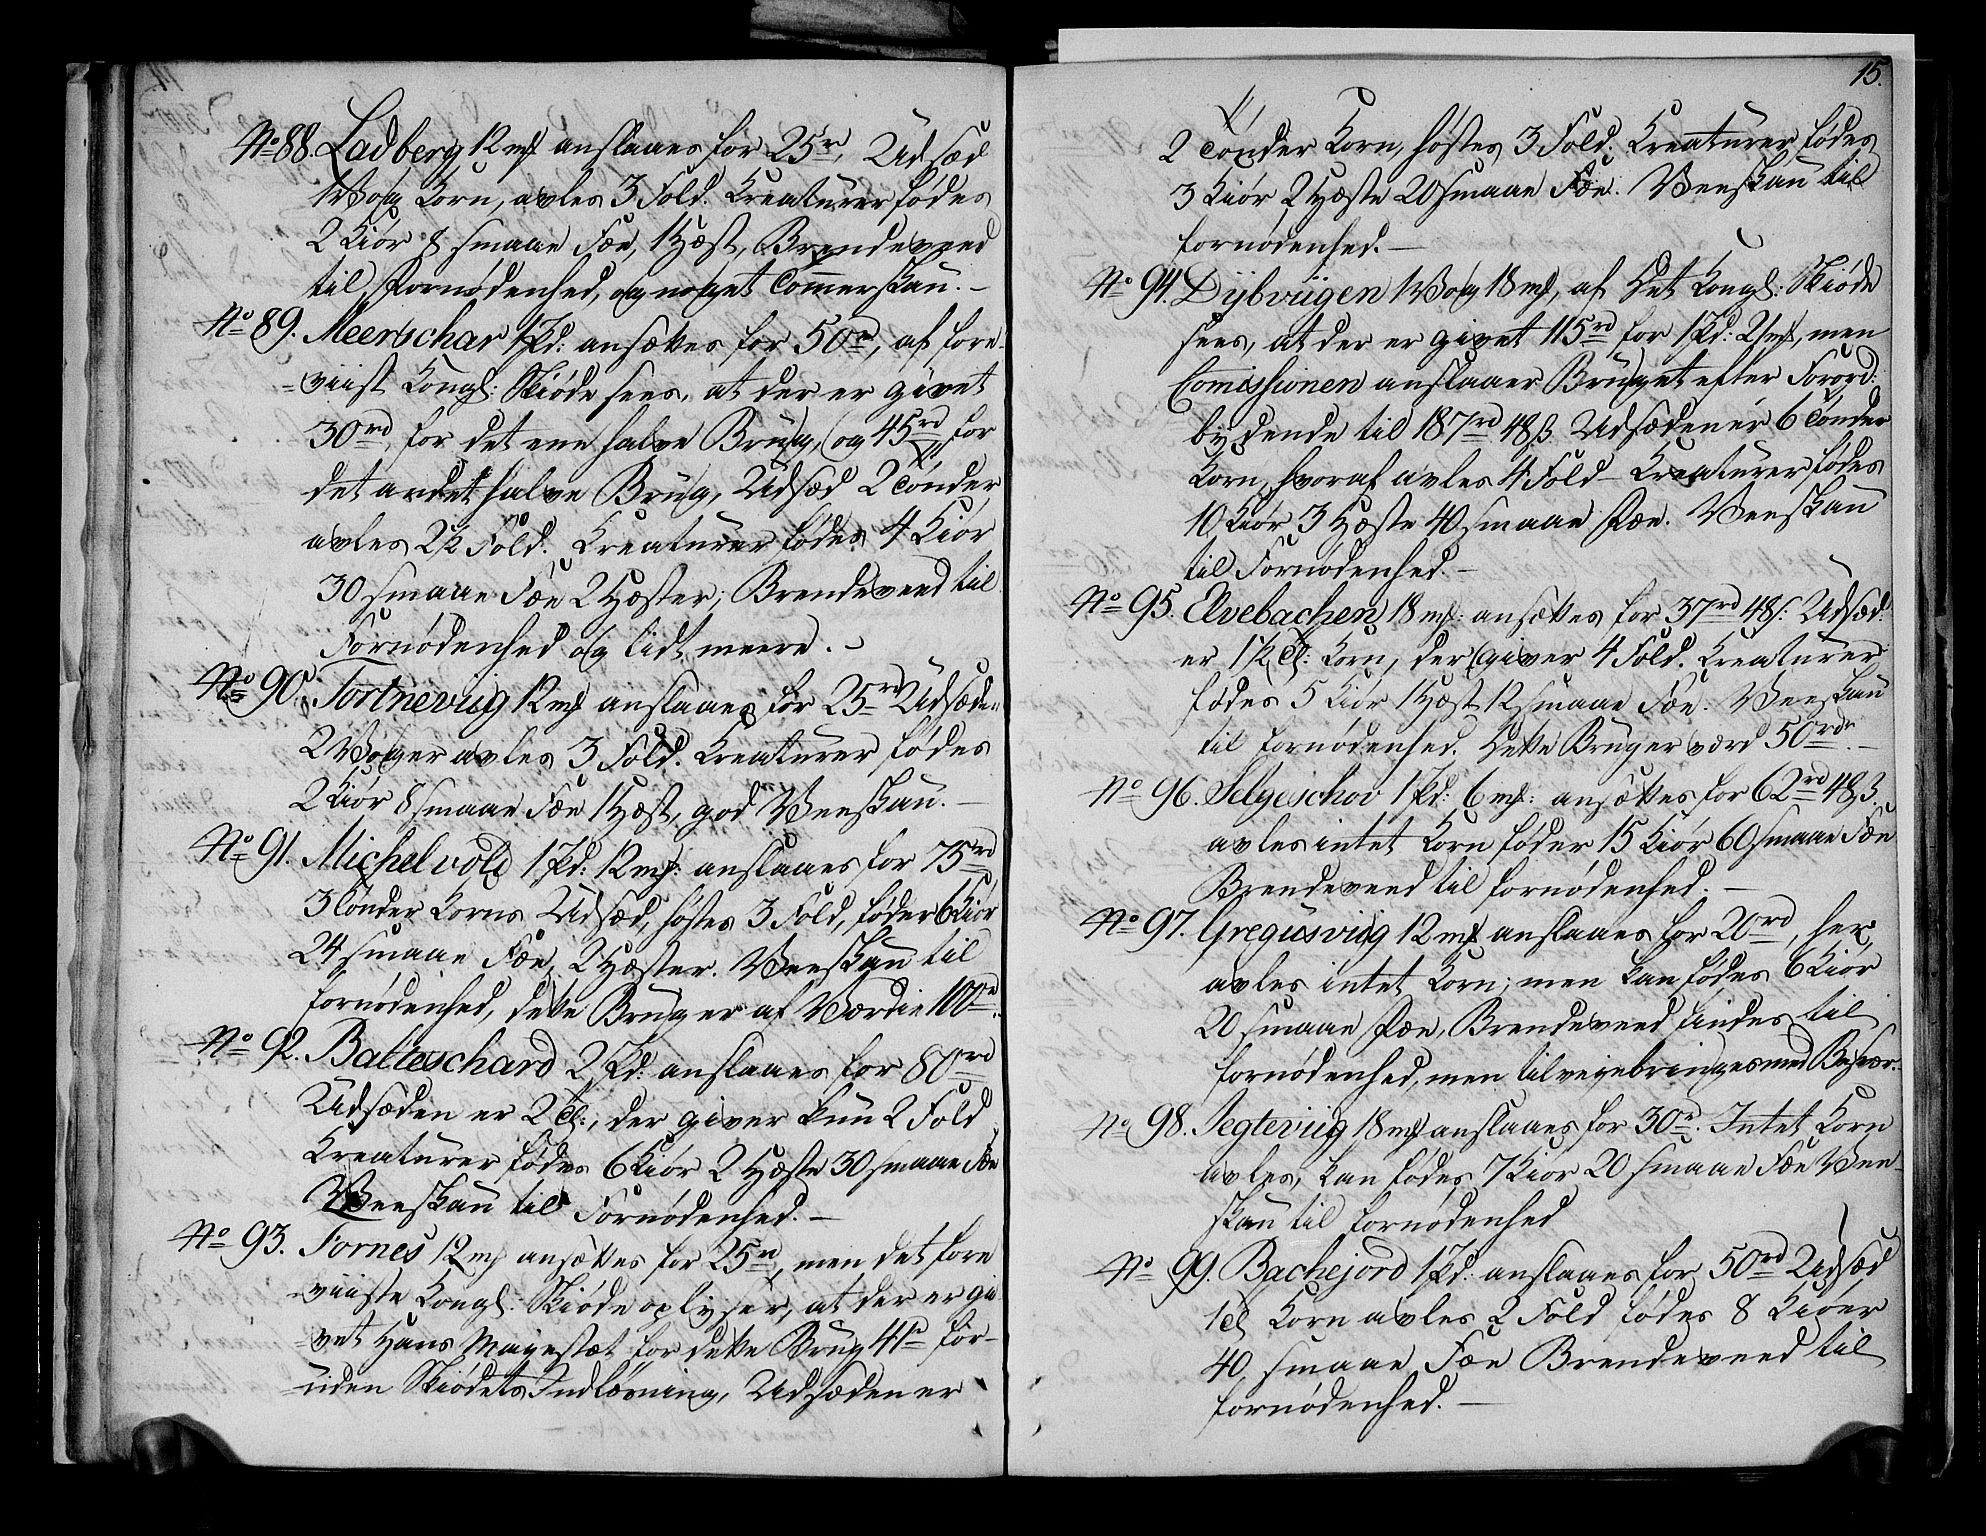 No 88. Ladberg 12 mk anslaaes for 25 rd, Udsæd
1 Wog Korn, avles 3 Fold. Kreaturer fødes
2 Kiør 8 smaae Fæe, 1 Hæst, Brendeveed
til Fornødenhed, og noget Tømmerskau. –
No 89. Meerschar 1 Pd: ansættes for 50 rd, af fore-
-viist Kongl: Skiøde sees, at der er givet
30 rd, for det eene halve Brug, og 45 rd for
det andet halve Brug, Udsæd 2 Tønder
avles 2½ Fold. Kreaturer fødes 4 Kiør
30 smaae Fæe 2 Hæster, Brendeveed til
Fornødenhed og lidt meere.
No 90. Tortneviig 12 mk anslaaes for 25 rd Udsæden
2 Woger avles 3 Fold. Kreaturer fødes
2 Kiør 8 smaae Fæe 1 Hæst, god Veeskau. –
No 91. Michelvold 1 Pd: 12 mk: anslaaes for 75 rd
3 Tønder Korns Udsæd, høstes 3 Fold, føder 6 Kiør
24 smaae Fæe, 2 Hæster. Veeskau til
fornødenhed, dette Brug er af Værdie 100 rd.
No 92. Balteschard 2 Pd: anslaaes for 80 rd
Udsæden er 2 Td:, der giver kun 2 Fold
Kreaturer fødes 6 Kiør 2 Hæste 30 smaae Fæe
Veeskau til Fornødenhed. –
No 93. Fornes 12 mk ansættes for 25 rd, men det fore
-viiste Kongl: Skiøde oplyser, at der er gi
-vet Hans Mayestæt for dette Brug 41 rd for-
-uden Skiødets Indløsning, Udsæden er
15.
2 Tønder Korn, høstes 3 Fold. Kreaturer fødes
3 Kiør 2 Hæste 20 smaae Fæe. Veeskau til
fornødenhed. –
No 94. Dybviigen 1 Wog 18 mk, af det Kongl: Skiøde
sees, at der er givet 115 rd for 1 Pd: 21 mk, men
Comissionen anslaaer Bruget efter Forord:
bydende til 187 rd 48 ß. Udsæden er 6 Tønder
Korn, hvoraf avles 4 Fold – Kreaturer fødes
10 Kiør 3 Hæste 40 smaae Fæe. Veeskau
til Fornødenhed. –
No 95. Elvebachen 18 mk: ansættes for 37 rd 48 ß: Udsæd:
er 1½ Td: Korn, der giver 4 Fold. Kreaturer
fødes 5 Kiør 1 Hæst 12 smaae Fæe. Veeskau
til fornødenhed. Dette Brug er værd 50 rdr. –
No 96. Selgeschov 1 Pd: 6 mk: ansættes for 62 rd 48 ß.
avles intet Korn føder 15 Kiør 60 smaae Fæe
Brendeveed til fornødenhed. –
No 97. Gregusviig 12 mk anslaaes for 20 rd, her
avles intet Korn; men kan fødes 6 Kiør
20 smaae Fæe, Brendeveed findes til
fornødenhed, men tilveyebringes med Besvær:
No 98. Jegteviig 18 mk anslaaes for 30 rd. Intet Korn
avles, kan fødes 7 Kiør 20 smaae Fæe Vee-
skau til fornødenhed
No 99. Bachejord 1 Pd: anslaaes for 50 rd Udsæd
1 Td Korn avles 2 Fold fødes 8 Kiøer
40 smaae Fæe Brendeveed til
fornødenhed. –